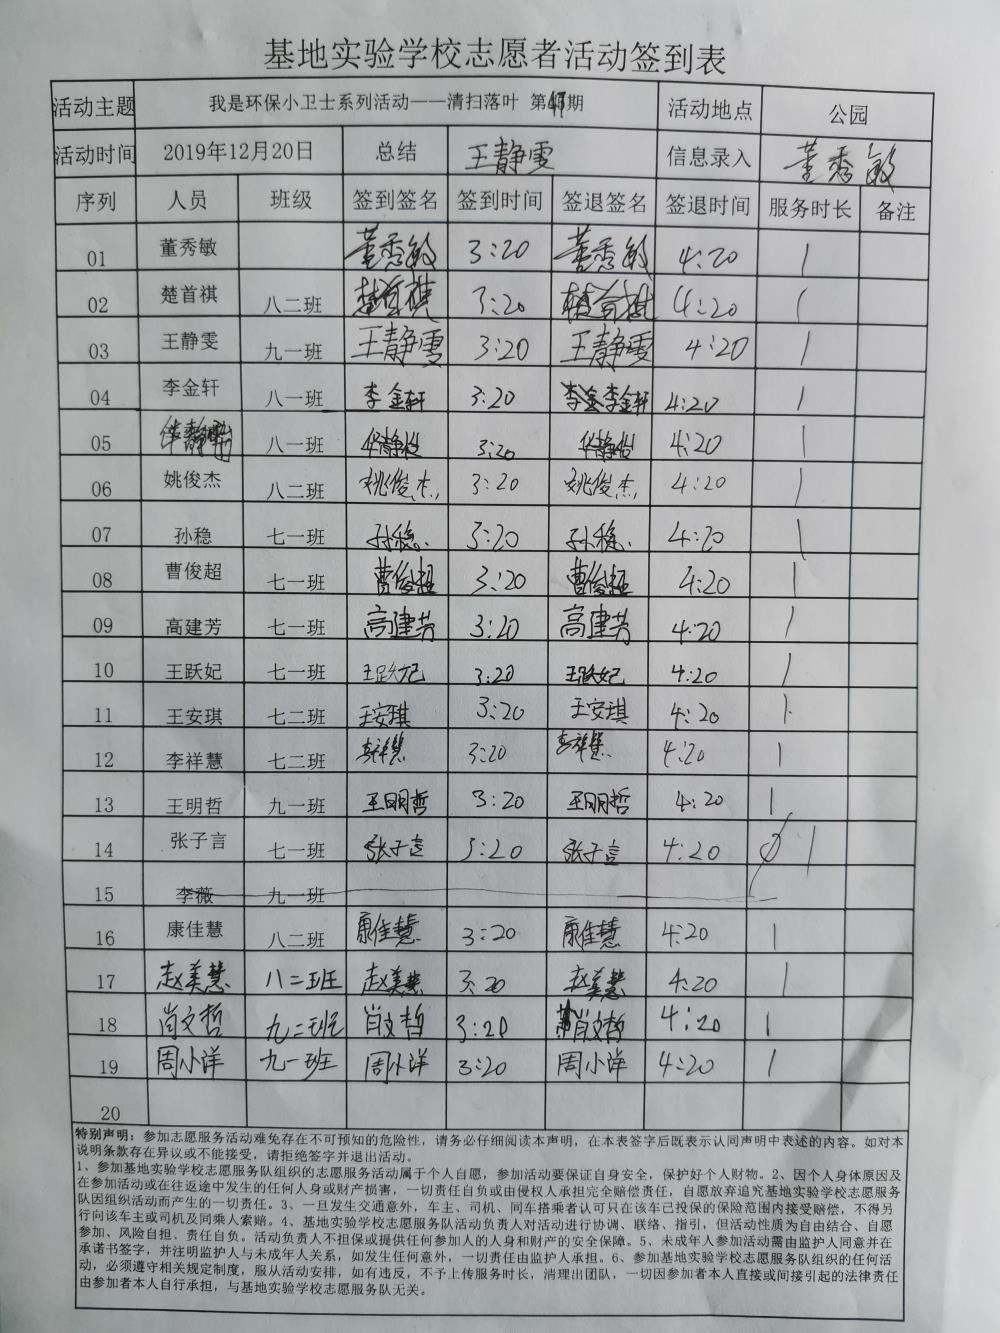 基地实验学校志愿者活动签到表
活动主题 我是环保小卫士系列活动——清扫落叶 第 期 活动地点 公园
活动时间 2019年12月20日 总结 王静雯 信息录入 董秀敏
序列 人员 班级 签到签名 签到时间 签退签名 签退时间 服务时长 备注
01 董秀敏 董秀敏 3:20 董秀敏 4:20 1
02 楚首祺 八二班 楚首祺 3:20 楚首祺 4:20 1
03 王静雯 九一班 王静雯 3:20 王静雯 4:20 1
04 李金轩 八一班 李金轩 3:20 李金轩 4:20 1
05 八一班 3:20 4:20 1
06 姚俊杰 八二班 姚俊杰 3:20 姚俊杰 4:20 1
07 孙稳 七一班 孙稳 3:20 孙稳 4:20 1
08 曹俊超 七一班 曹俊超 3:20 曹俊超 4:20 1
09 高建芳 七一班 高建芳 3:20 高建芳 4:20 1
10 王跃妃 七一班 王跃妃 3:20 王跃妃 4:20 1
11 王安琪 七二班 王安琪 3:20 王安琪 4:20 1
12 李祥慧 七二班 李祥慧 3:20 李祥慧 4:20 1
13 王明哲 九一班 王明哲 3:20 王明哲 4:20 1
14 张子言 七一班 张子言 3:20 张子言 4:20 1
15 李薇 九一班
16 康佳慧 八二班 康佳慧 3:20 康佳慧 4:20 1
17 赵美慧 八二班 赵美慧 3:20 赵美慧 4:20 1
18 肖文哲 九二班 肖文哲 3:20 肖文哲 4:20 1
19 周小洋 九一班 周小洋 3:20 周小洋 4:20 1
20
特别声明：参加志愿服务活动难免存在不可预知的危险性，请务必仔细阅读本声明，在本表签字后既表示认同声明中表述的内容。如对本
说明条款存在异议或不能接受，请拒绝签字并退出活动。
1、参加基地实验学校志愿服务队组织的志愿服务活动属于个人自愿，参加活动要保证自身安全，保护好个人财物。2、因个人身体原因及
在参加活动或在往返途中发生的任何人身或财产损害，一切责任自负或由侵权人承担完全赔偿责任，自愿放弃追究基地实验学校志愿服务
队因组织活动而产生的一切责任。3、一旦发生交通意外，车主、司机、同车搭乘者认可只在该车已投保的保险范围内接受赔偿，不得另
行向该车主或司机及同乘人索赔。4、基地实验学校志愿服务队活动负责人对活动进行协调、联络、指引，但活动性质为自由结合、自愿
参加、风险自担、责任自负。活动负责人不担保或提供任何参加人的人身和财产的安全保障。5、未成年人参加活动需由监护人同意并在
承诺书签字，并注明监护人与未成年人关系，如发生任何意外，一切责任由监护人承担。6、参加基地实验学校志愿服务队组织的任何活
动，必须遵守相关规定制度，服从活动安排，如有违反，不予上传服务时长，清理出团队，一切因参加者本人直接或间接引起的法律责任
由参加者本人自行承担，与基地实验学校志愿服务队无关。